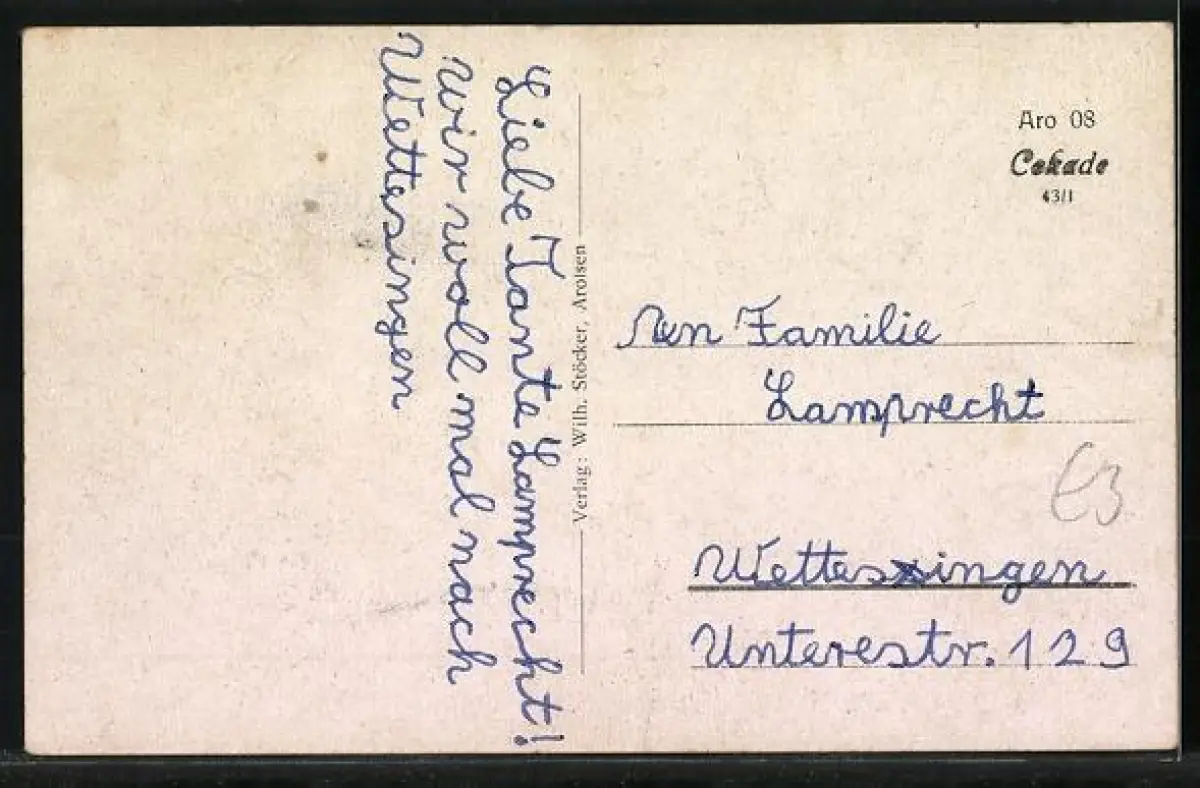 Liebe Tante Lamprecht!
Wir woll mal nach
Wettesingen
Verlag: Wilh. Stöcker, Arolsen
Aro 08
Cekade
43/1
An Familie
Lamprecht
Wettesingen
Unterestr. 129